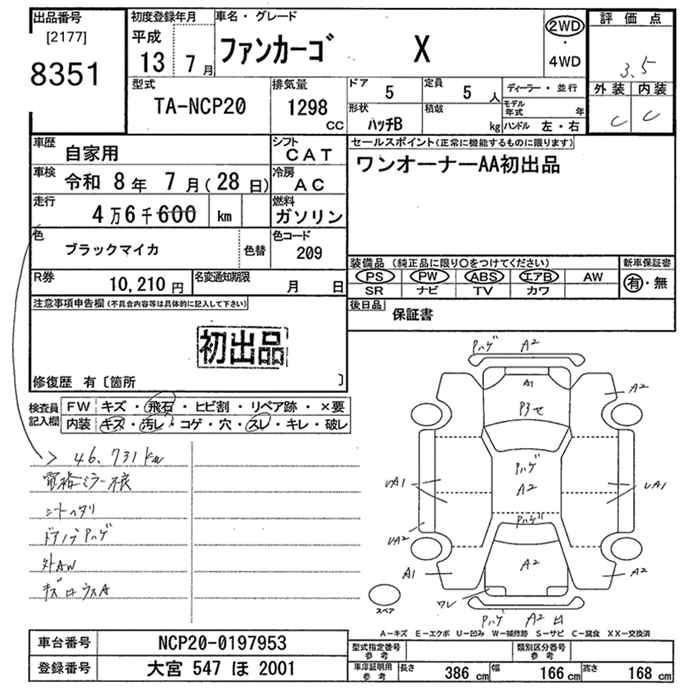 出品番号
[2177]
8351
初度登録年月
平成
13 7月
車名・グレード
ファンカーゴ X
2WD
・
4WD
評価点
3.5
外装 内装
C C
型式
TA-NCP20
排気量
1298
CC
ドア
5
定員
5 人
形状
ハッチB
積載
kg
ディーラー・並行
モデル年式 年
ハンドル 左・右
車歴
自家用
シフト
CAT
車検
令和 8年 7月(28日)
冷房
AC
走行
4万6千600 km
燃料
ガソリン
色
ブラックマイカ
色替
色コード
209
R券
10,210円
名変通知期限
月 日
セールスポイント(正常に機能するものに限ります)
ワンオーナーAA初出品
装備品 (純正品に限り〇をつけてください)
PS PW ABS エアB AW
SR ナビ TV カワ
新車保証書
有・無
後日品
保証書
注意事項申告欄(不具合内容等は具体的に記入して下さい)
初出品
修復歴 有〔箇所 〕
検査員記入欄
FW キズ・飛石・ヒビ割・リペア跡・×要
内装 キズ・汚レ・コゲ・穴・スレ・キレ・破レ
> 46,731km
電格ミラー不良
シートヘタリ
ドアノブPハゲ
外AW
Pハゲ A2
A1
A2
P3セ
Pハゲ
A2
UA1
UA1
UA2
Pハゲ
A2
A1
A2
ワレ
スペア
Pハゲ A2
A-キズ E-エクボ U-凹み W-補修跡 S-サビ C-腐食 XX-交換済
車台番号 NCP20-0197953
登録番号 大宮 547 ほ 2001
型式指定番号
参考
類別区分番号
参考
車庫証明用
参考
長さ 386 cm 幅 166 cm 高さ 168 cm